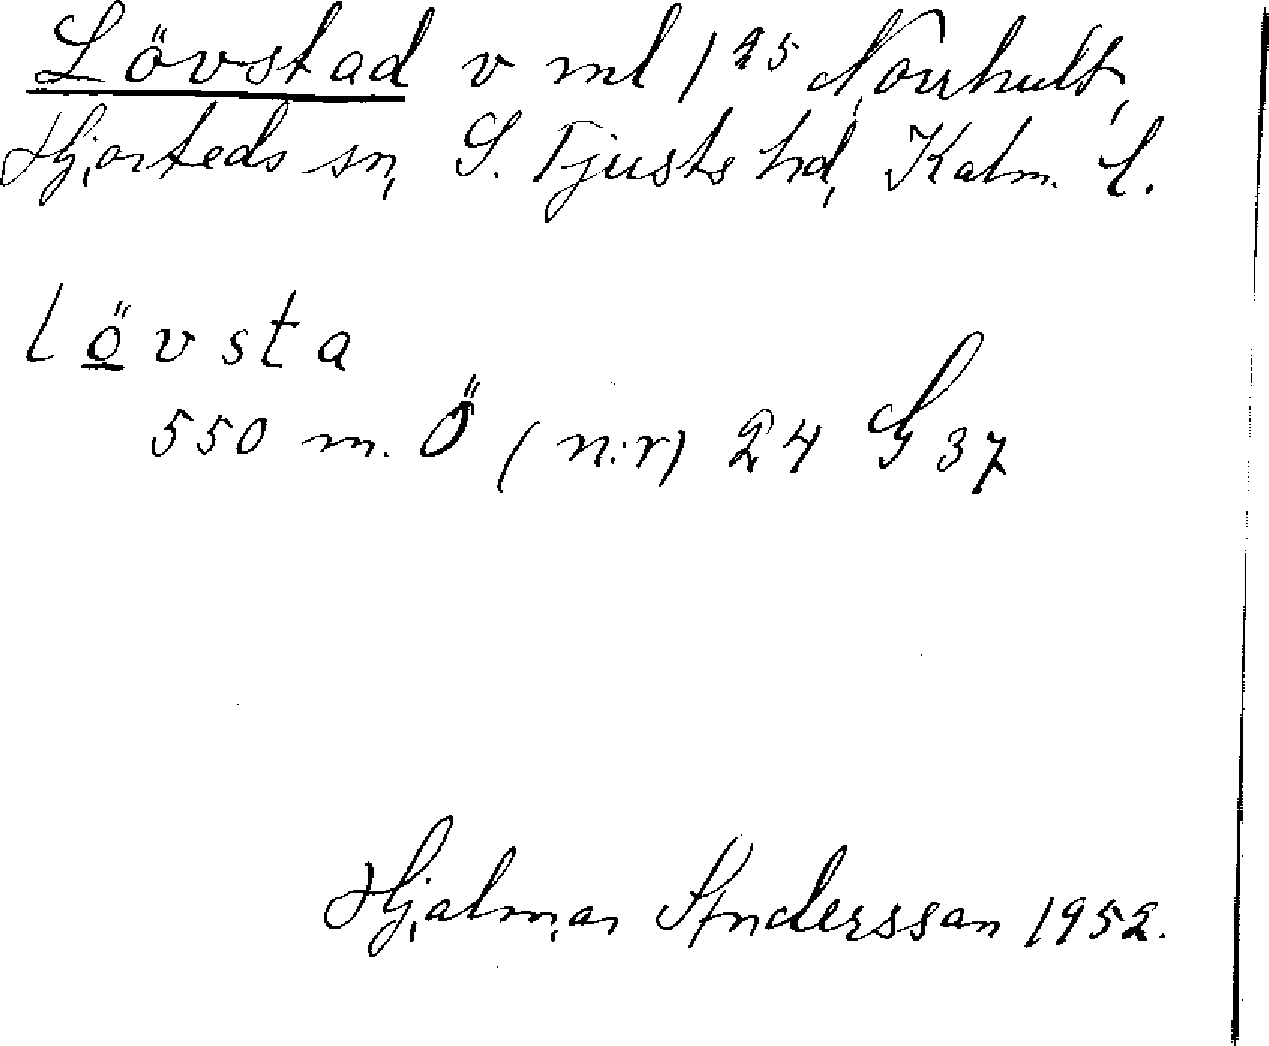 Lövstad v ml 1²⁵ Norrhult,
Hjorteds sn, S. Tjusts hd, Kalm. l.
lövsta
550 m. Ö (n:r) 24 G 37
Hjalmar Andersson 1952.